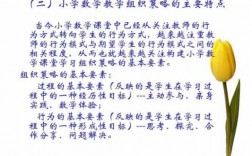 (二)小学数学教学组织策略的主要特点
当今小学数学课堂中已经从关注教师的行
为方式转向学生的行为方式，越来越注重
教师的行为模式与期望学生的行为模式之间的
相关程度，从而也就越来越关注构建小学数学
学习的组织策略的基本要素。
组织策略的基本要素：
过程的基本要素（反映的是学生在学习过
程中的一种经历性目标）---主动参与、亲身
实践、数学体验；
行为的基本要素（反映的是学生在学习过
程中的一种形成性目标）---思考、探究、合
作分享、问题解决。